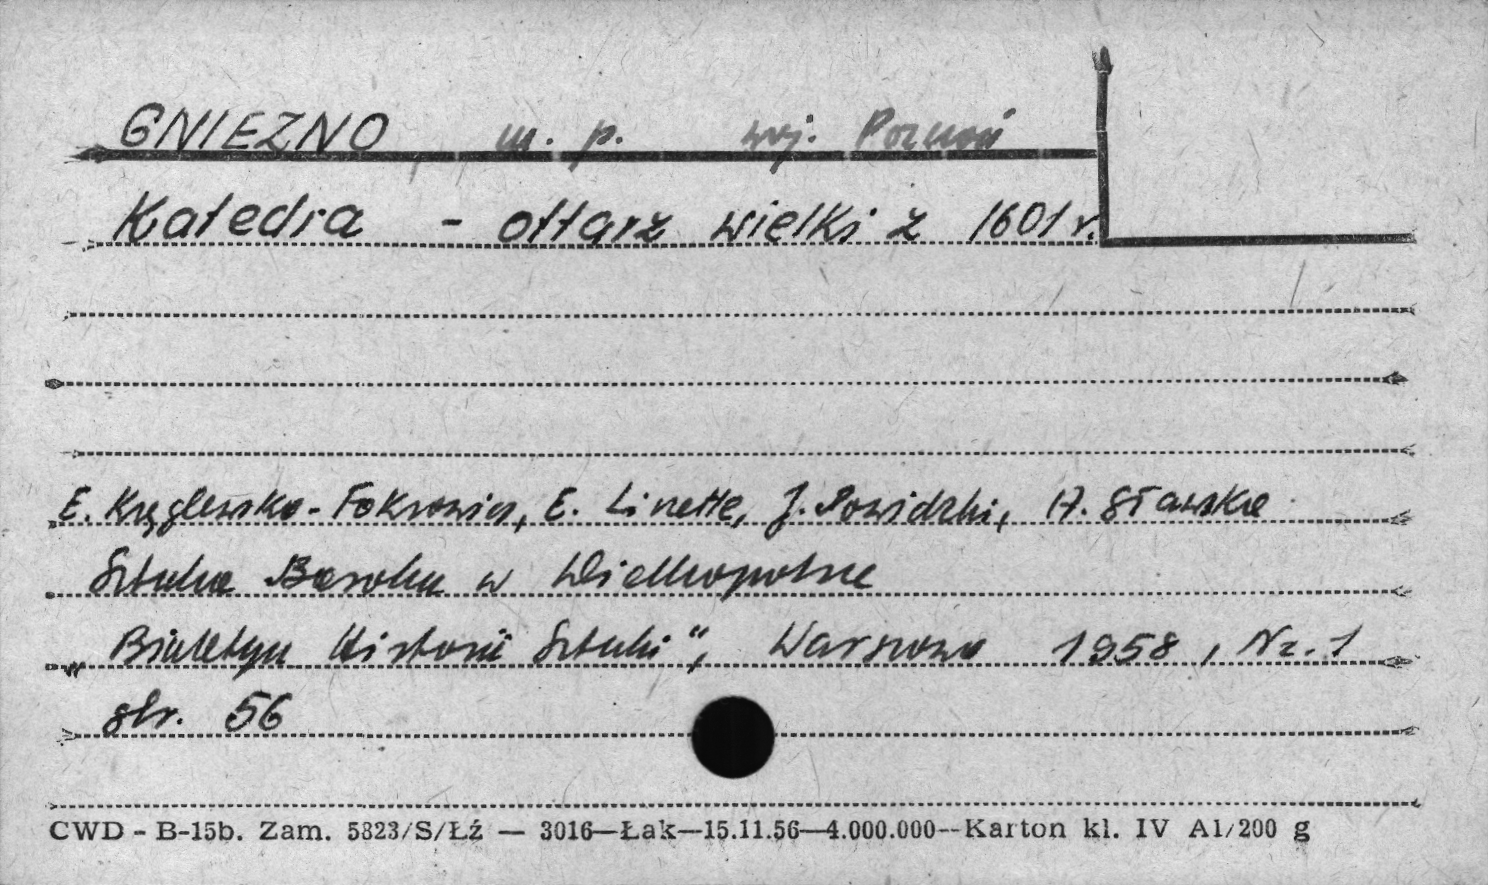 GNIEZNO m. p. woj. Poznań
Katedra - ołtarz wielki z 1601 r.
E. Kręglewska-Fokrowicz, E. Linette, J. Powidzki, A. Sławska
Sztuka Baroku w Wielkopolsce
"Biuletyn Historii Sztuki", Warszawa 1958, Nr. 1
str. 56
CWD - B-15b. Zam. 5823/S/Łź — 3016—Łak—15.11.56—4.000.000--Karton kl. IV A1/200 g